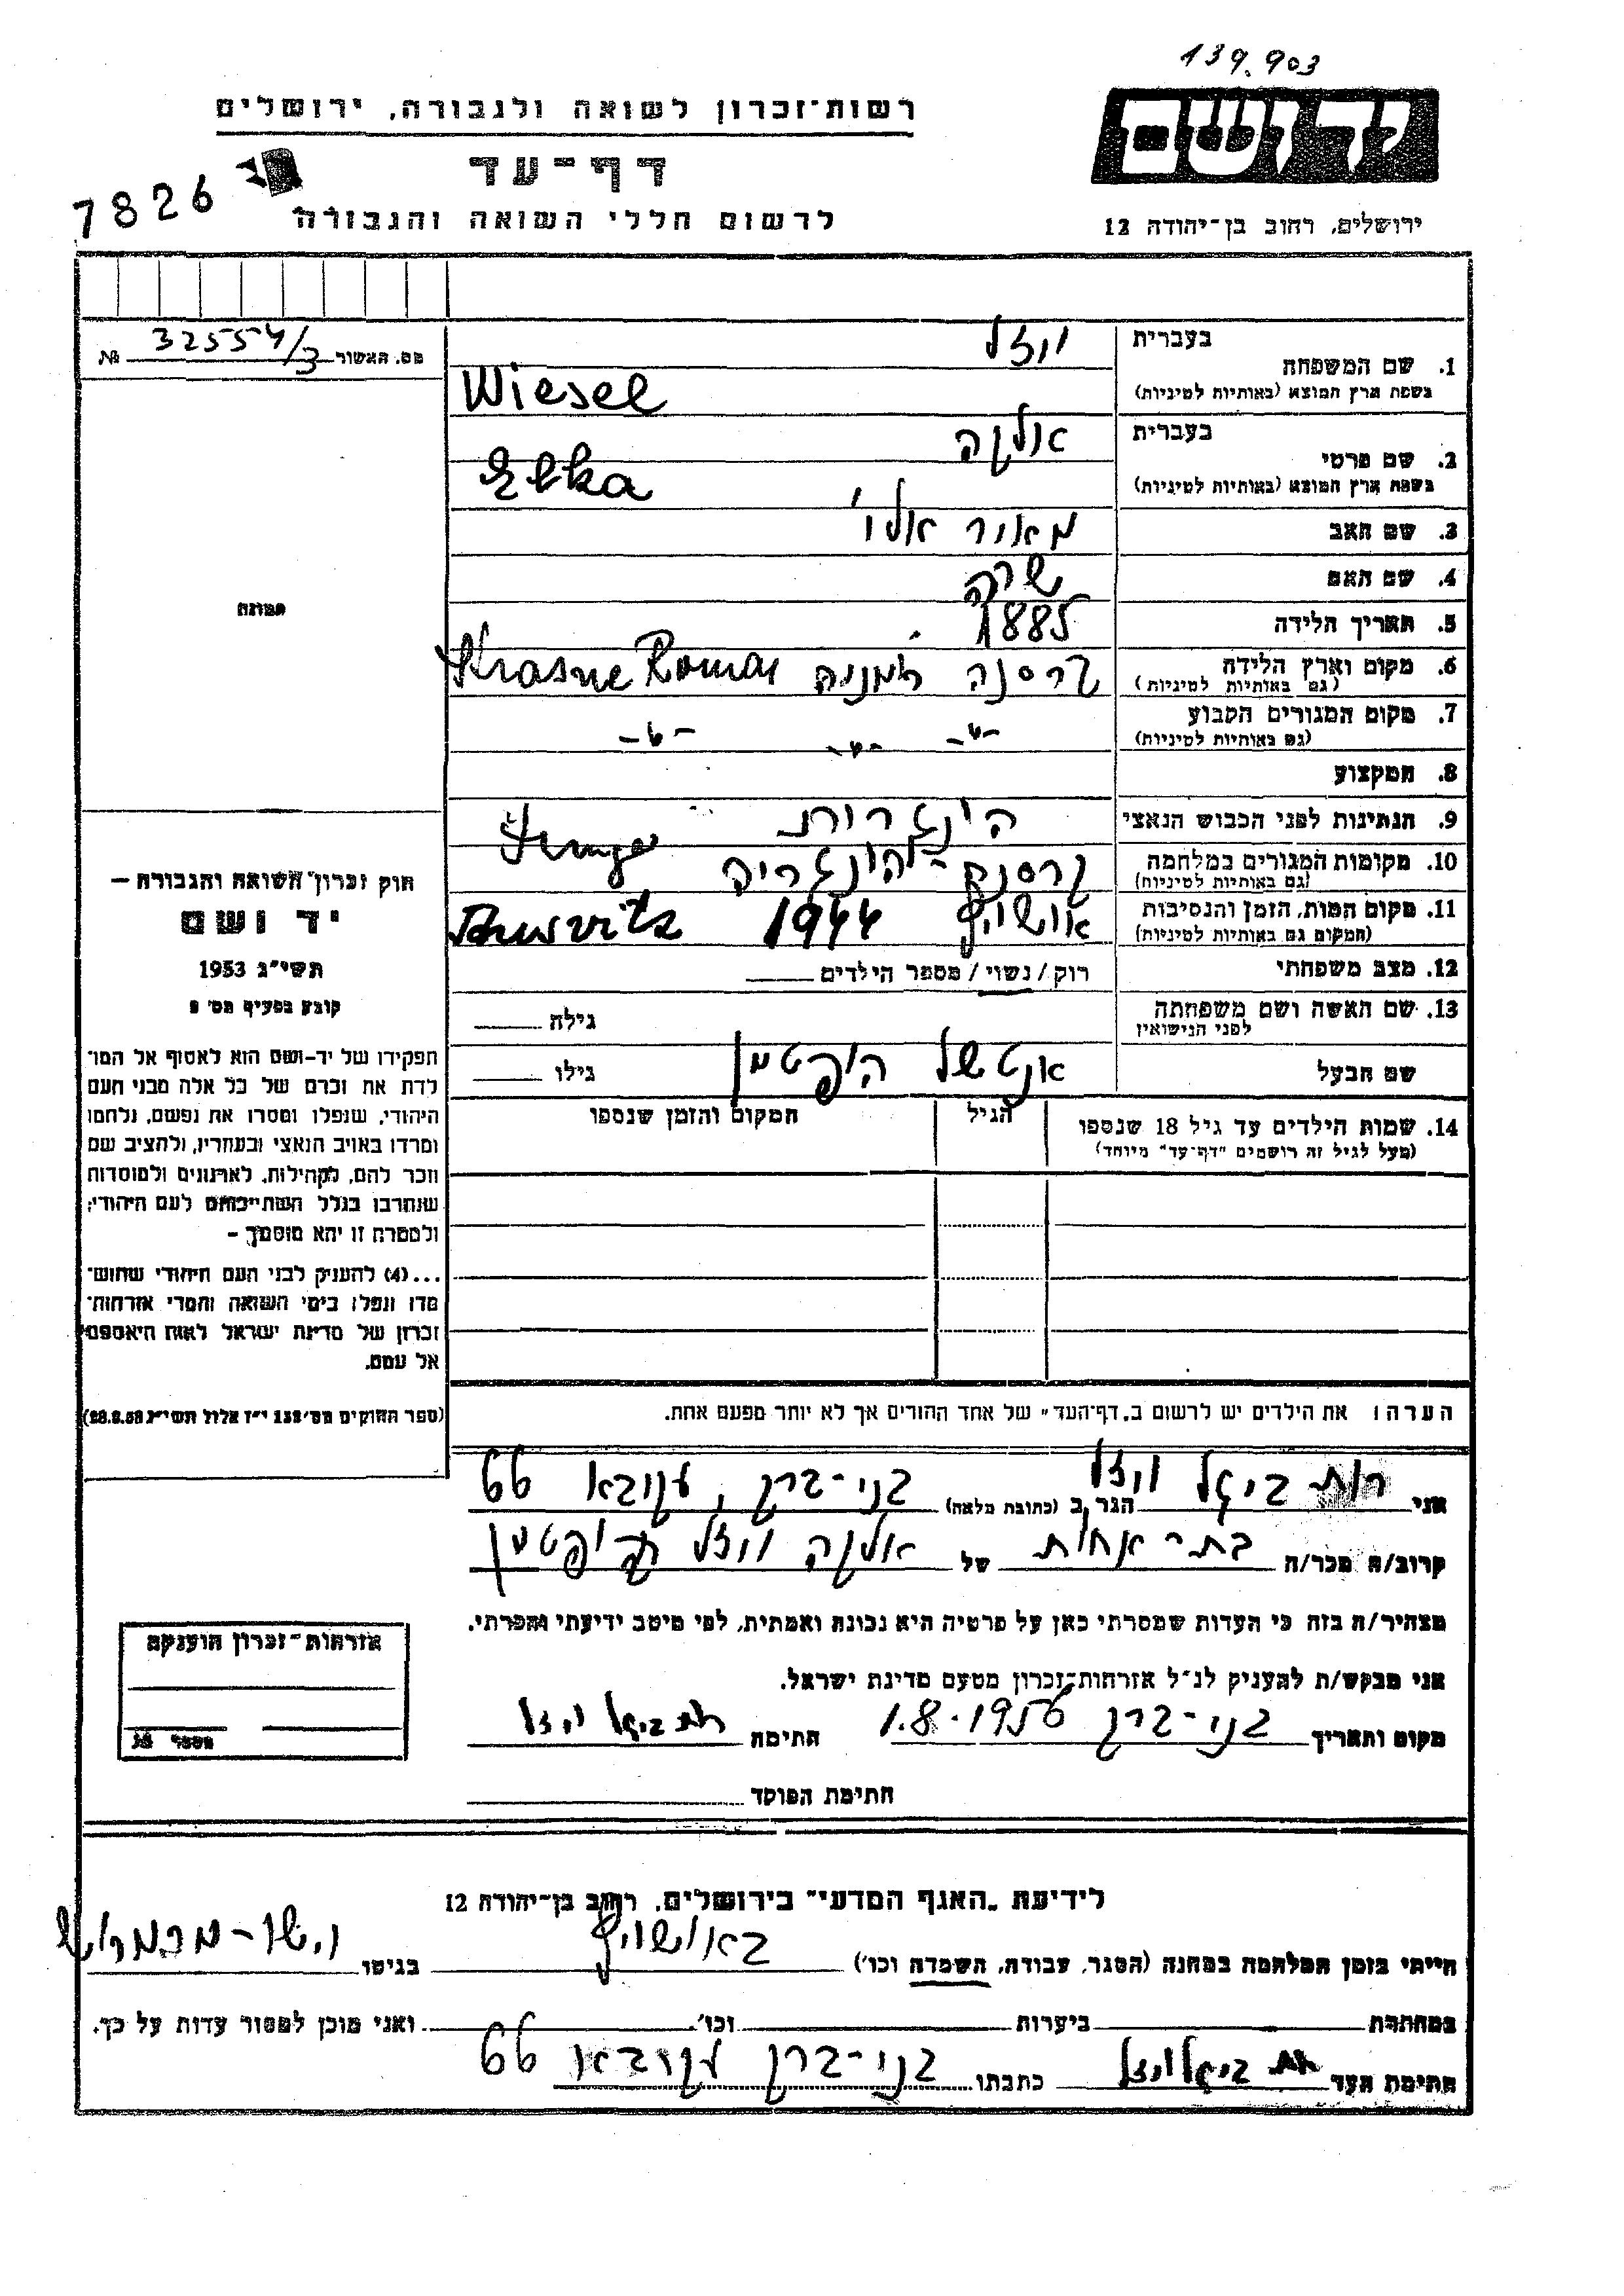 139.903
רשות־זכרון לשואה ולגבורה, ירושלים
יד ושם
דף־עד
7826
לרשום חללי השואה והגבורה
ירושלים, רחוב בן־יהודה 12
בעברית ויזל
1. שם המשפחה
בשפת ארץ המוצא (באותיות לטיניות) Wiesel
מס. האשור 32554/3 №
בעברית אלקה
2. שם פרטי
בשפת ארץ המוצא (באותיות לטיניות) Elka
3. שם האב מאיר
4. שם האם שרה
5. תאריך הלידה 1885
6. מקום וארץ הלידה קרסנה רומניה Krasne
(גם באותיות לטיניות)
7. מקום המגורים הקבוע -"- -"- -"-
(גם באותיות לטיניות)
8. המקצוע
9. הנתינות לפני הכבוש הנאצי הונגרית
10. מקומות המגורים במלחמה קרסנה - הונגריה
(גם באותיות לטיניות)
11. מקום המות, הזמן והנסיבות אושויץ 1944
(המקום גם באותיות לטיניות)
12. מצב משפחתי רוק / נשוי / מספר הילדים
13. שם האשה ושם משפחתה גילה
לפני הנישואין
שם הבעל אנטשל הופטמן גילו
14. שמות הילדים עד גיל 18 שנספו הגיל המקום והזמן שנספו
(מעל לגיל זה רושמים "דף־עד" מיוחד)
תמונה
חוק זכרון השואה והגבורה —
יד ושם
תשי"ג 1953
קובע בסעיף מס'
תפקידו של יד-ושם הוא לאסוף אל המו־
לדת את זכרם של כל אלה מבני העם
היהודי, שנפלו ומסרו את נפשם, נלחמו
ומרדו באויב הנאצי ובעוזריו, ולהציב שם
וזכר להם, לקהילות, לארגונים ולמוסדות
שנחרבו בגלל השתייכותם לעם היהודי;
ולמטרה זו יהא מוסמך —
...(4) להעניק לבני העם היהודי שהוש־
מדו ונפלו בימי השואה והמרי אזרחות־
זכרון של מדינת ישראל לאות היאספם
אל עמם.
(ספר החוקים מס' 132 י"ז אלול תשי"ג
הערה: את הילדים יש לרשום ב„דף־העד" של אחד ההורים אך לא יותר מפעם אחת.
אני רות ביגל ויזל הגר ב (כתובת מלאה) בני-ברק, עקיבא 66
קרוב/ה מכר/ה בת - אחות של אלקה ויזל הופטמן
מצהיר/ה בזה כי העדות שמסרתי כאן על פרטיה היא נכונה ואמתית, לפי מיטב ידיעתי והכרתי.
אני מבקש/ת להעניק לנ"ל אזרחות־זכרון מטעם מדינת ישראל.
מקום ותאריך בני-ברק 1.8.1956 חתימה רות ביגל ויזל
חתימת הפוקד
אזרחות־זכרון הוענקה
מספר
לידיעת „האגף המדעי" בירושלים, רחוב בן־יהודה 12
הייתי בזמן המלחמה במחנה (הסגר, עבודה, השמדה וכו') באושויץ בגיטו
במחתרת ביערות וכו' ואני מוכן למסור עדות על כך.
חתימת העד רות ביגל ויזל כתבתו בני-ברק עקיבא 66